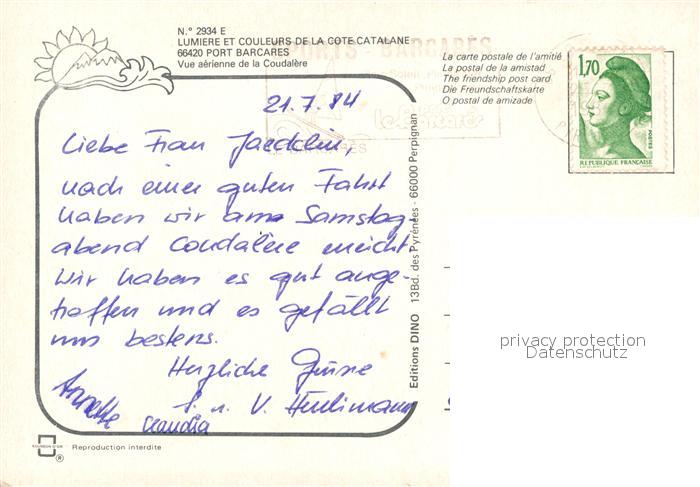 N.° 2934 E
LUMIERE ET COULEURS DE LA COTE CATALANE
66420 PORT BARCARES
Vue aérienne de la Coudalère
PORTS - BARCARES
La carte postale de l'amitié
La postal de la amistad
The friendship post card
Die Freundschaftskarte
O postal de amizade
1,70
POSTES
REPUBLIQUE FRANÇAISE
21.7.84
Liebe Frau
nach einer guten Fahrt
haben wir am Samstag-
abend Coudalère erreicht.
Wir haben es gut ange-
troffen und es gefällt
uns bestens.
Herzliche Grüsse
Annette
u. V. Hürlimann
Claudia
Editions DINO 13Bd. des Pyrénées - 66000 Perpignan
privacy protection
Datenschutz
®
Reproduction interdite